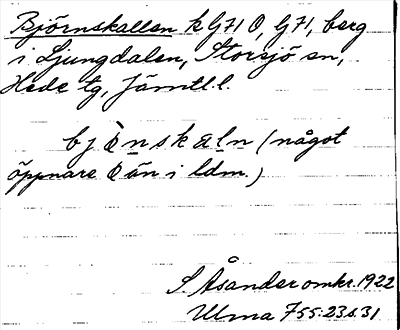 Björnskallen k G71 Ö, G71, berg
i Ljungdalen, Storsjö sn,
Hede tg, Jämtl.l.
bjònskaln (något
öppnare ò än i ldm.)
S. Åsander omkr. 1922
Ulma 755:23 s.31